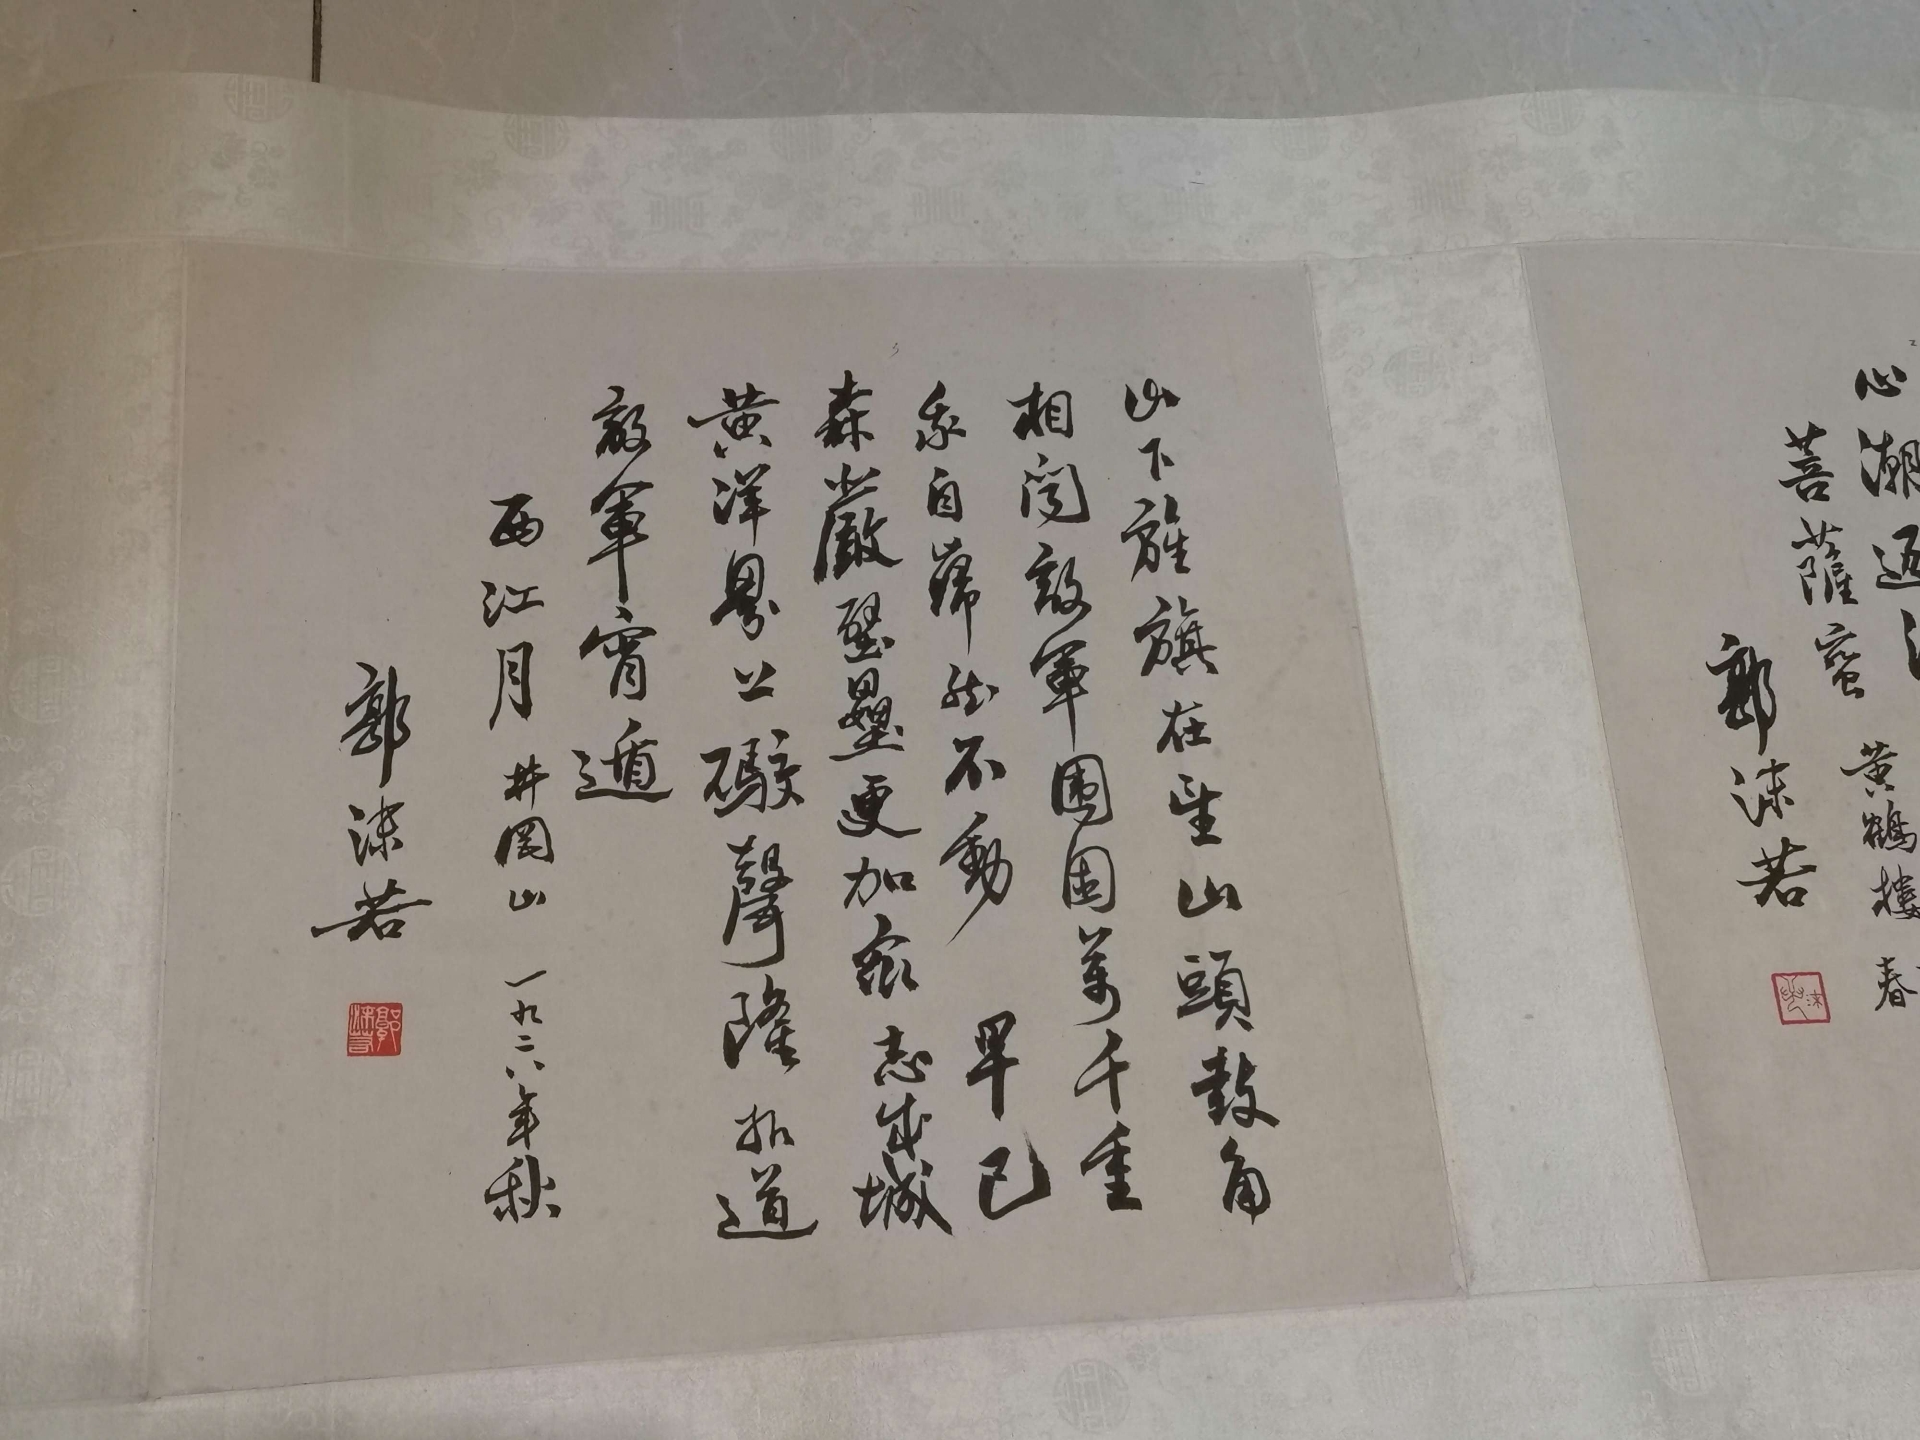 山下旌旗在望山頭鼓角
相聞敵軍圍困萬千重
我自巋然不動 早已
森嚴壁壘更加眾志成城
黃洋界上礮聲隆報道
敵軍宵遁
西江月 井岡山 一九二八年秋
郭沫若
郭沫若
心潮逐
菩薩蠻 黃鶴樓 春
郭沫若